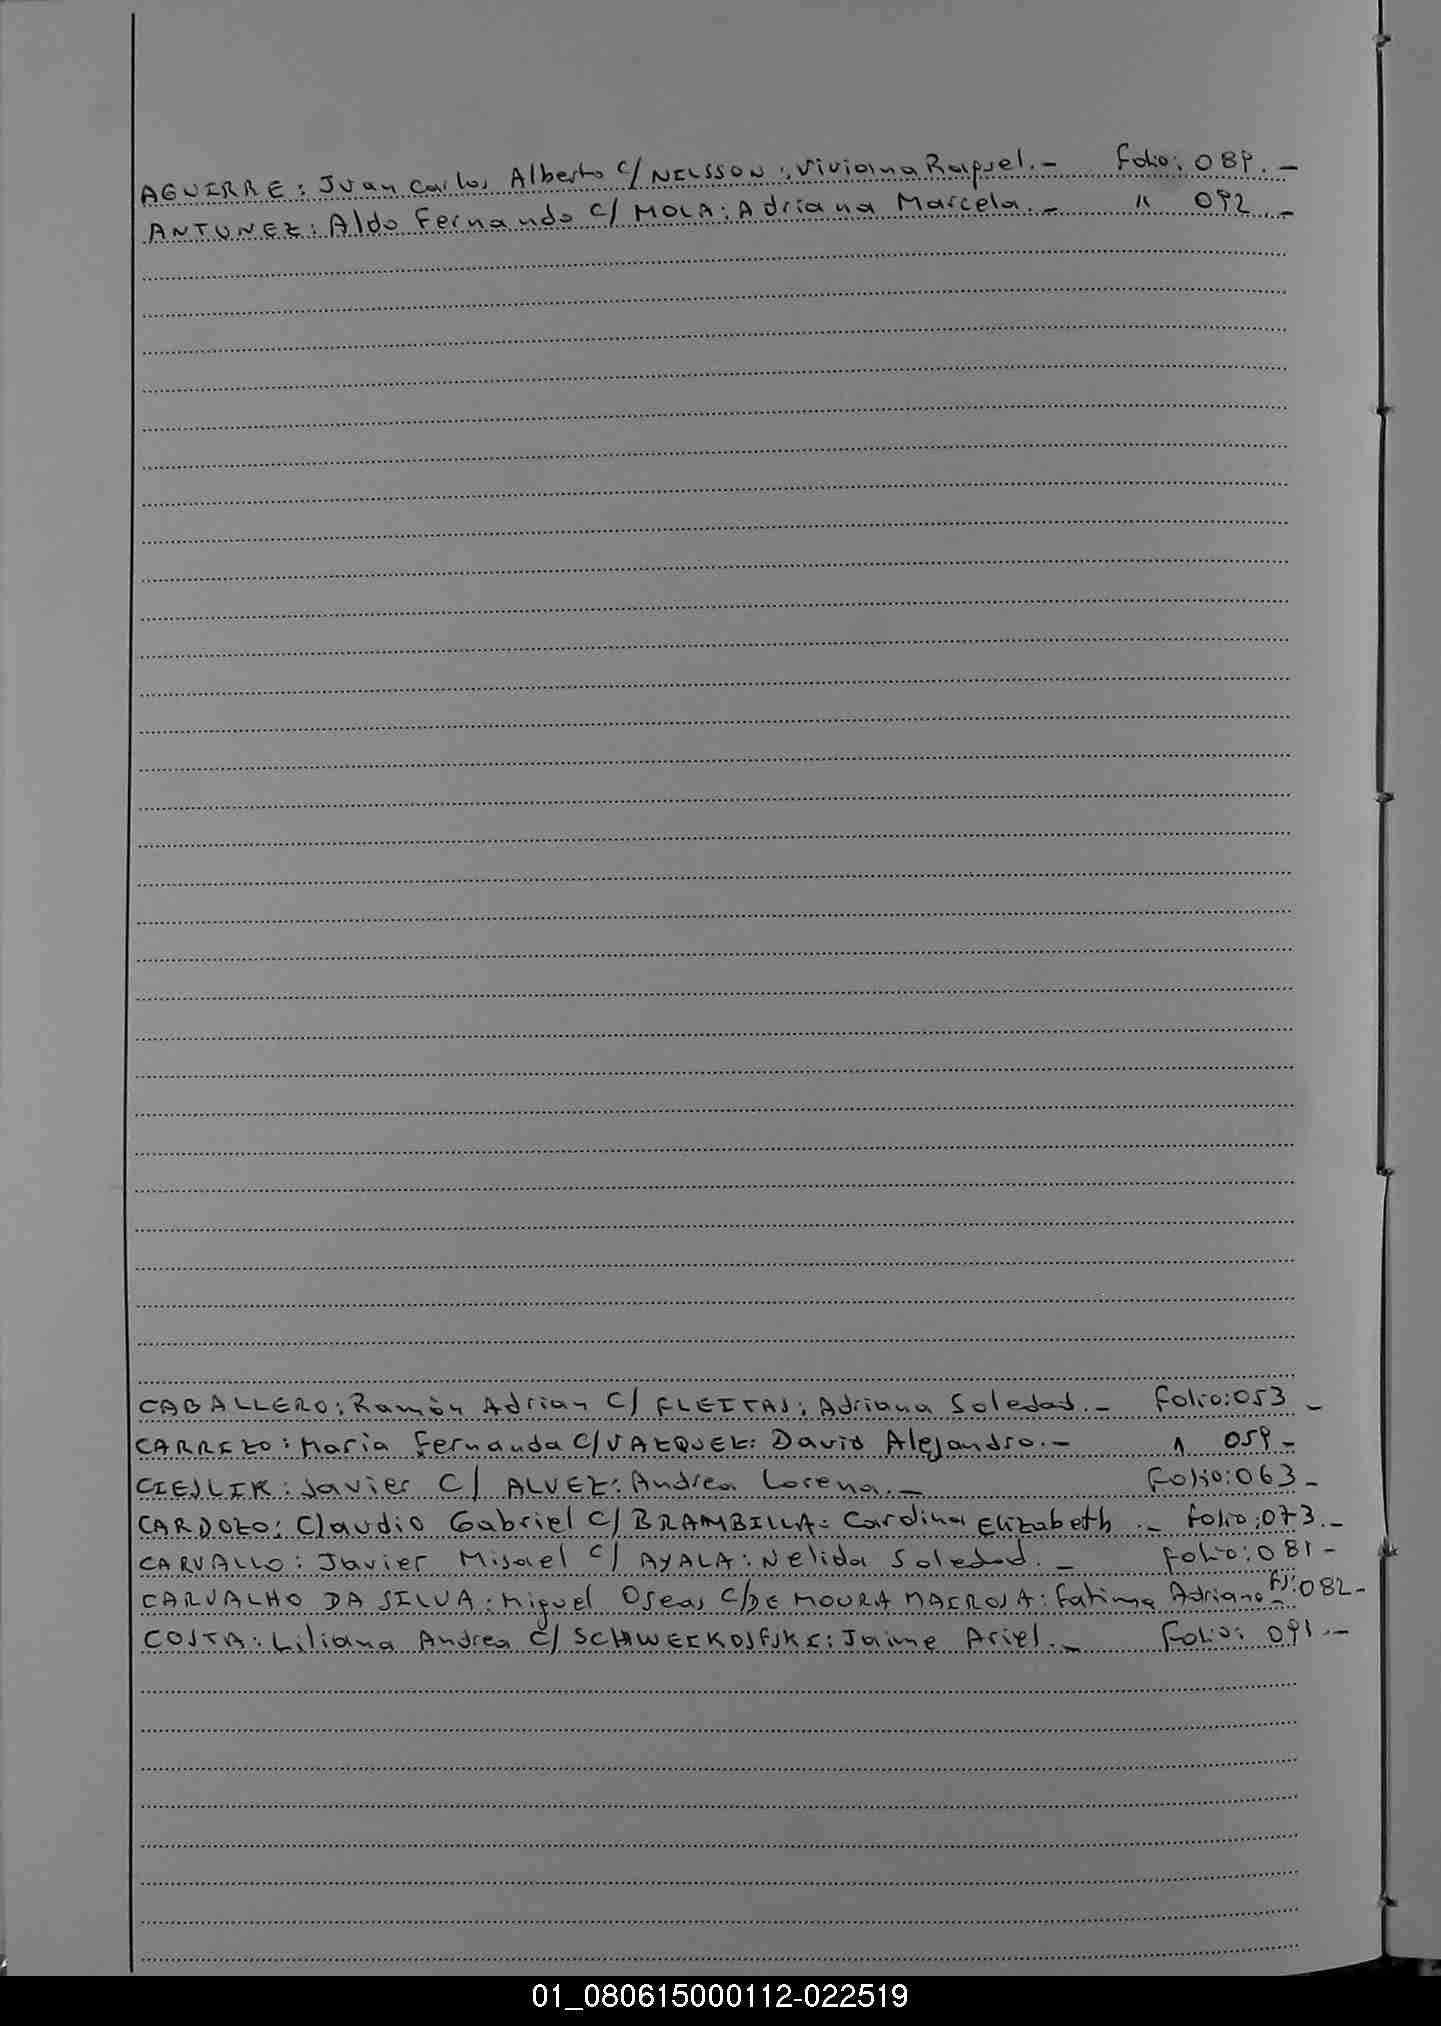 AGUIRRE: Juan Carlos Alberto c/ NELSSON: Viviana Raquel.- Folio: 089.-
ANTUNEZ: Aldo Fernando c/ MOLA: Adriana Marcela.- " 092.-
CABALLERO: Ramón Adrian C/ FLEITAS: Adriana Soledad.- Folio: 053 -
CARREZO: Maria Fernanda C/ VAZQUEZ: David Alejandro.- " 059-
CIESLIK: Javier C/ ALVEZ: Andrea Lorena.- Folio: 063-
CARDOZO: Claudio Gabriel C/ BRAMBILLA: Cardina Elizabeth.- Folio: 073.-
CARVALLO: Javier Misael C/ AYALA: Nelida Soledad.- Folio: 081-
CARVALHO DA SILVA: Miguel Oseas C/ DE MOURA : Fatima Adriana- 082-
COSTA: Liliana Andrea C/ : Jaime Ariel.- Folio: 091.-
01_080615000112-022519